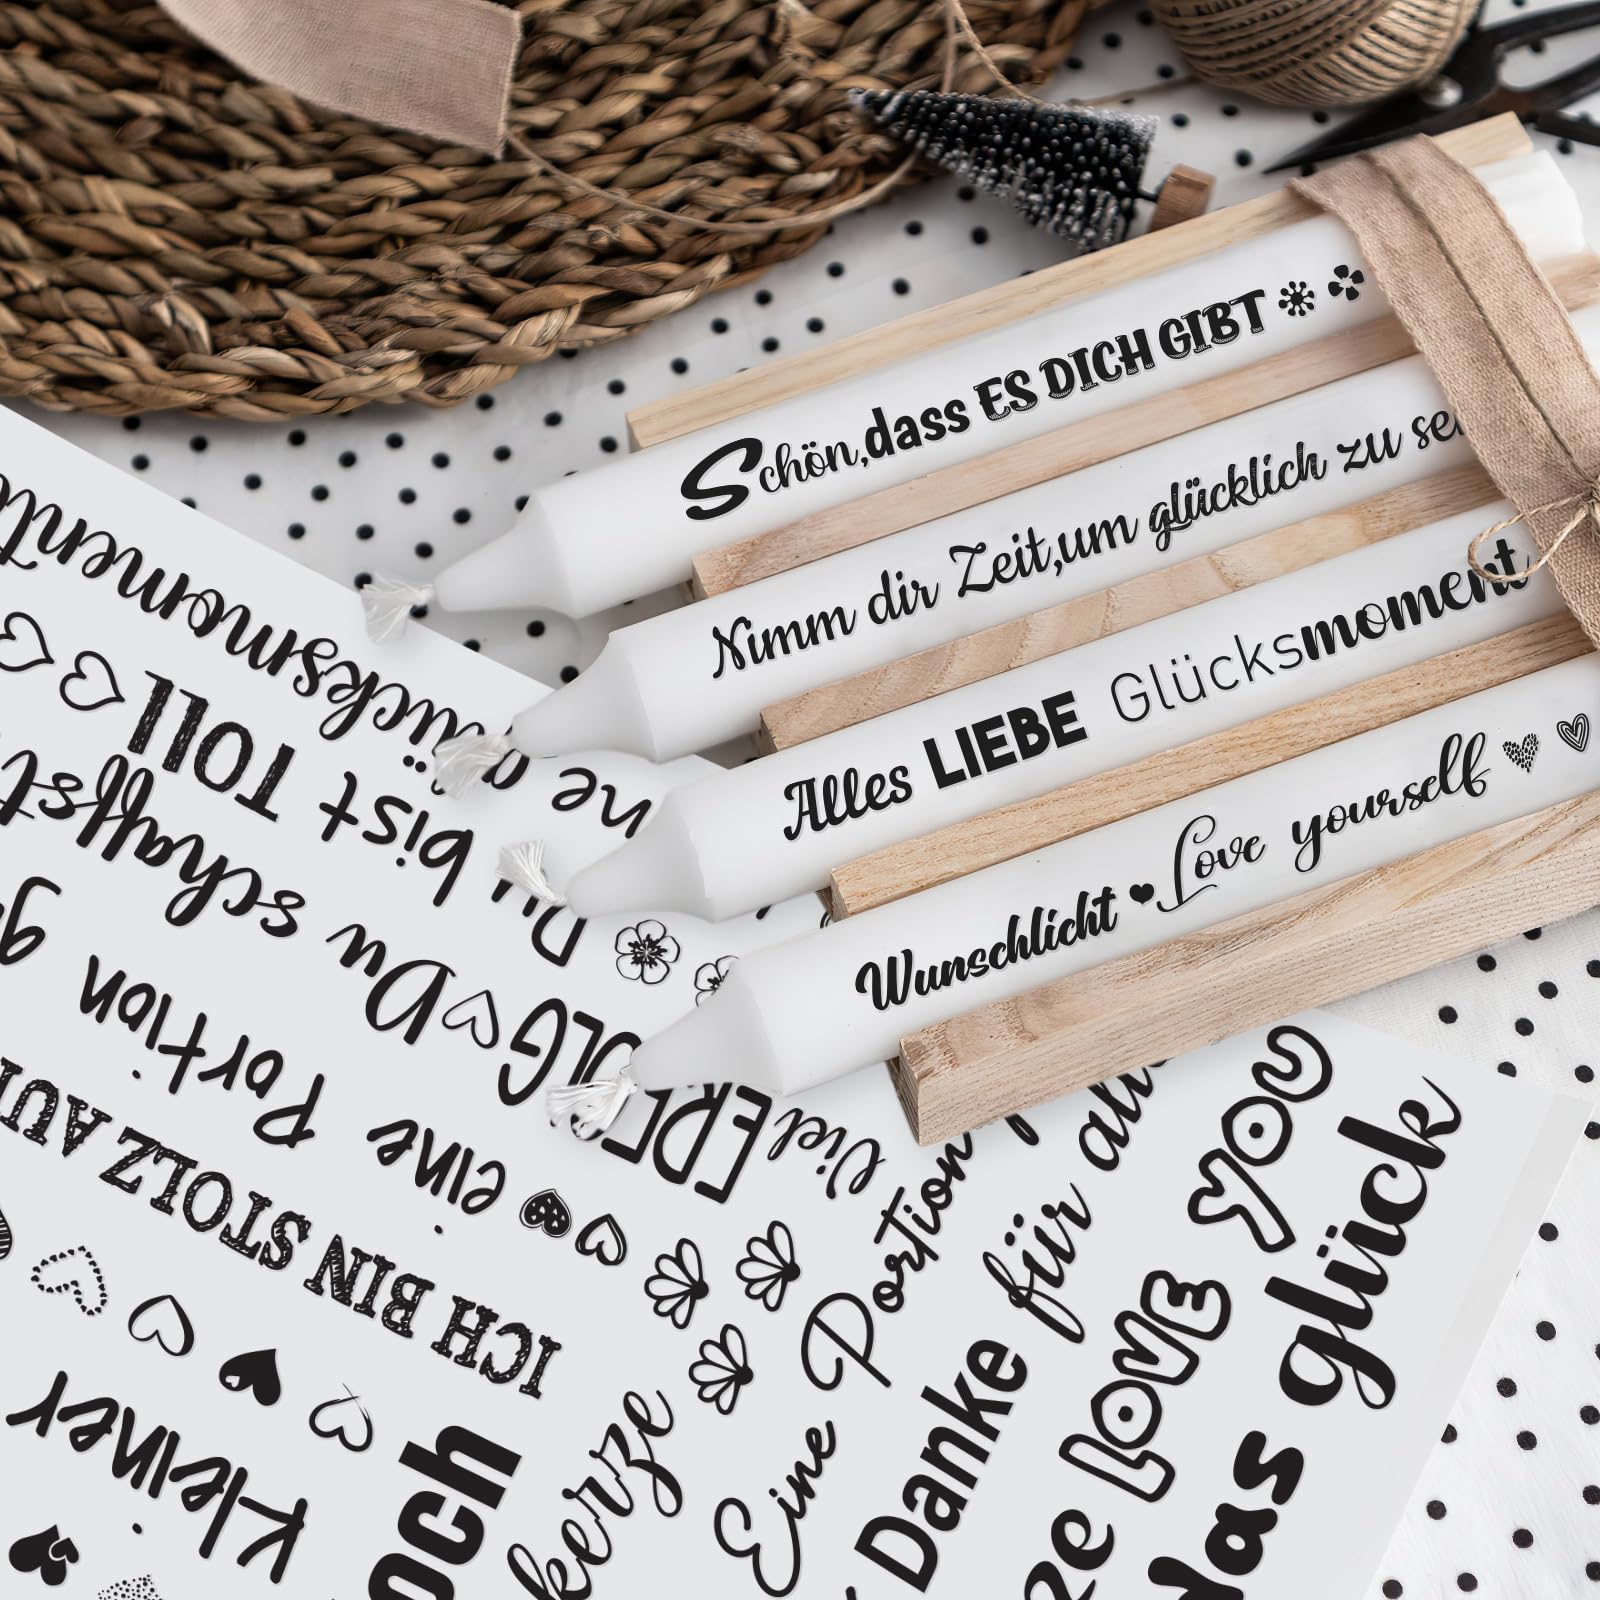 Schön,dass ES DICH GIBT
Nimm dir Zeit,um glücklich zu
Alles LIEBE Glücksmoment
Wunschlicht Love yourself
Du bist TOLL
Du schaffst
Viel
eine Portion
ICH BIN STOLZ AUF
kleiner
kerze
Eine Portion
Danke für
LOVE YOU
das glück